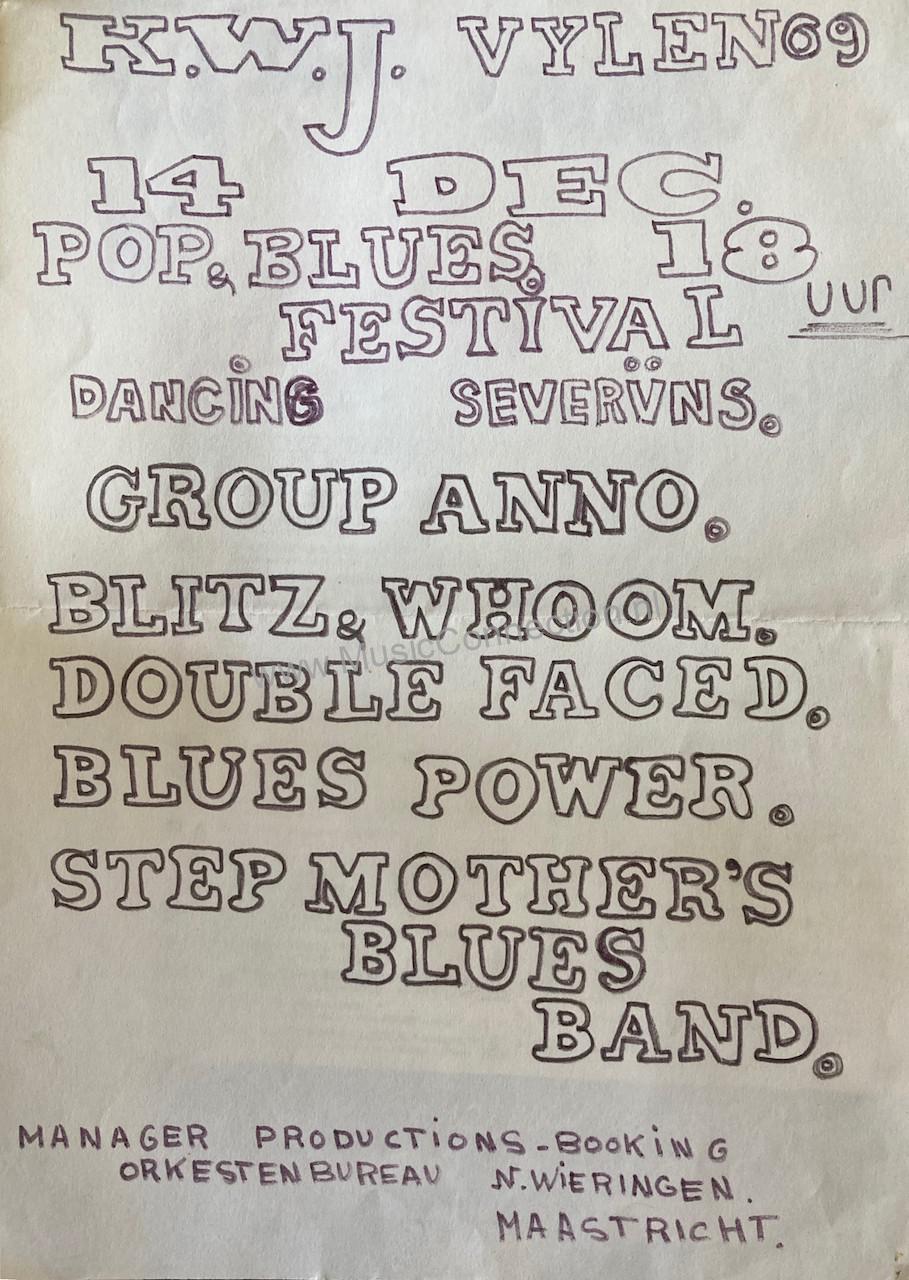 K.W.J. VYLEN69
14 DEC.
POP & BLUES. 18 uur
FESTiVAL
DANCiNG SEVERŸNS.
GROUP ANNO.
BLITZ & WHOOM.
www.MusicConnection.nl
DOUBLE FACED.
BLUES POWER.
STEP MOTHER'S
BLUES
BAND.
MANAGER PRODUCTiONS-BOOKiNG
ORKESTENBUREAU N.WiERINGEN.
MAASTRICHT.